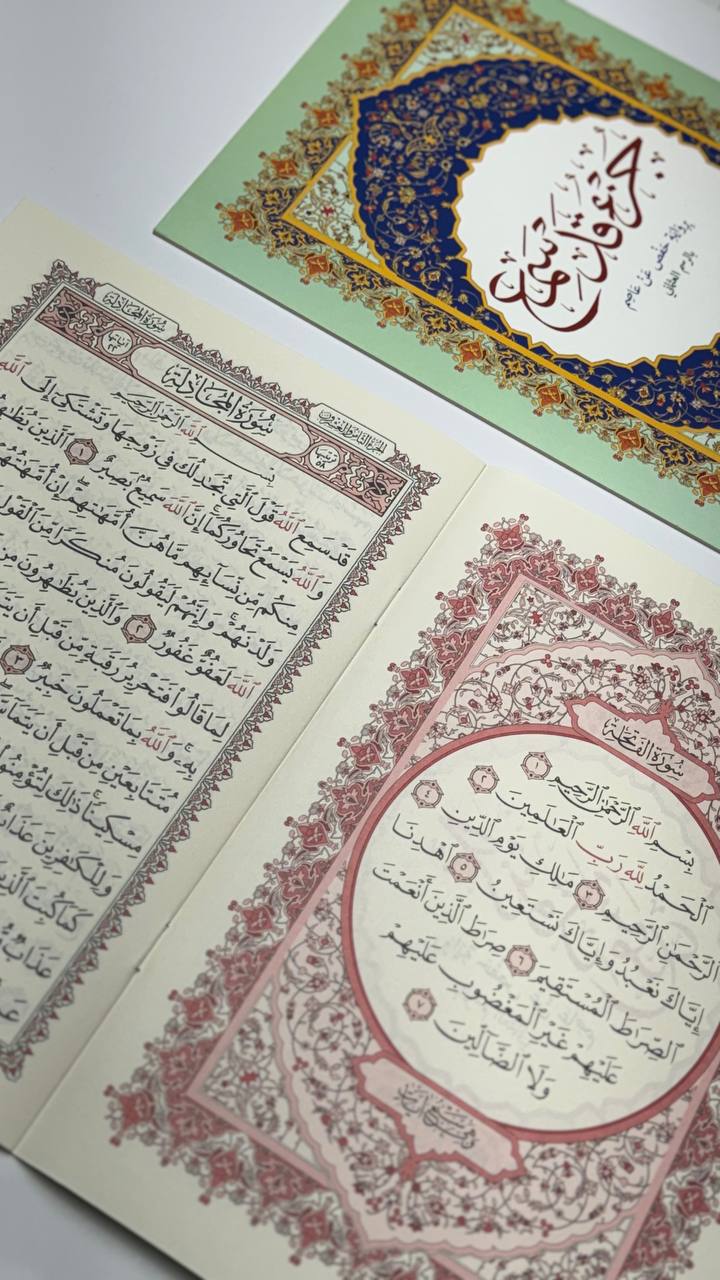 جزء قد سمع
برواية حفص عن عاصم
بالرسم العثماني
سُورَةُ الفَاتِحَة
بِسْمِ ٱللَّهِ ٱلرَّحْمَٰنِ ٱلرَّحِيمِ ١
ٱلْحَمْدُ لِلَّهِ رَبِّ ٱلْعَٰلَمِينَ ٢
ٱلرَّحْمَٰنِ ٱلرَّحِيمِ ٣ مَٰلِكِ يَوْمِ ٱلدِّينِ ٤
إِيَّاكَ نَعْبُدُ وَإِيَّاكَ نَسْتَعِينُ ٥ ٱهْدِنَا
ٱلصِّرَٰطَ ٱلْمُسْتَقِيمَ ٦ صِرَٰطَ ٱلَّذِينَ أَنْعَمْتَ
عَلَيْهِمْ غَيْرِ ٱلْمَغْضُوبِ عَلَيْهِمْ
وَلَا ٱلضَّآلِّينَ ٧
سُورَةُ المُجَادلة
الجزء الثامن والعشرون
آياتها ٢٢
سُورَةُ المُجَادلة
ترتيبها ٥٨
بِسْمِ ٱللَّهِ ٱلرَّحْمَٰنِ ٱلرَّحِيمِ
قَدْ سَمِعَ ٱللَّهُ قَوْلَ ٱلَّتِي تُجَٰدِلُكَ فِي زَوْجِهَا وَتَشْتَكِيٓ إِلَى ٱللَّهِ
وَٱللَّهُ يَسْمَعُ تَحَاوُرَكُمَآ إِنَّ ٱللَّهَ سَمِيعٌۢ بَصِيرٌ ١ ٱلَّذِينَ يُظَٰهِرُونَ
مِنكُم مِّن نِّسَآئِهِم مَّا هُنَّ أُمَّهَٰتِهِمْ إِنْ أُمَّهَٰتُهُمْ
وَلَدْنَهُمْ وَإِنَّهُمْ لَيَقُولُونَ مُنكَرًا مِّنَ ٱلْقَوْلِ
ٱللَّهَ لَعَفُوٌّ غَفُورٌ ٢ وَٱلَّذِينَ يُظَٰهِرُونَ مِن
لِمَا قَالُوا۟ فَتَحْرِيرُ رَقَبَةٍ مِّن قَبْلِ أَن
بِهِۦ وَٱللَّهُ بِمَا تَعْمَلُونَ خَبِيرٌ ٣
مُتَتَابِعَيْنِ مِن قَبْلِ أَن يَتَمَآسَّا
مِسْكِينًا ذَٰلِكَ لِتُؤْمِنُوا۟
وَلِلْكَٰفِرِينَ عَذَابٌ
كَمَا كُبِتَ ٱلَّذِينَ
عَذَابٌ